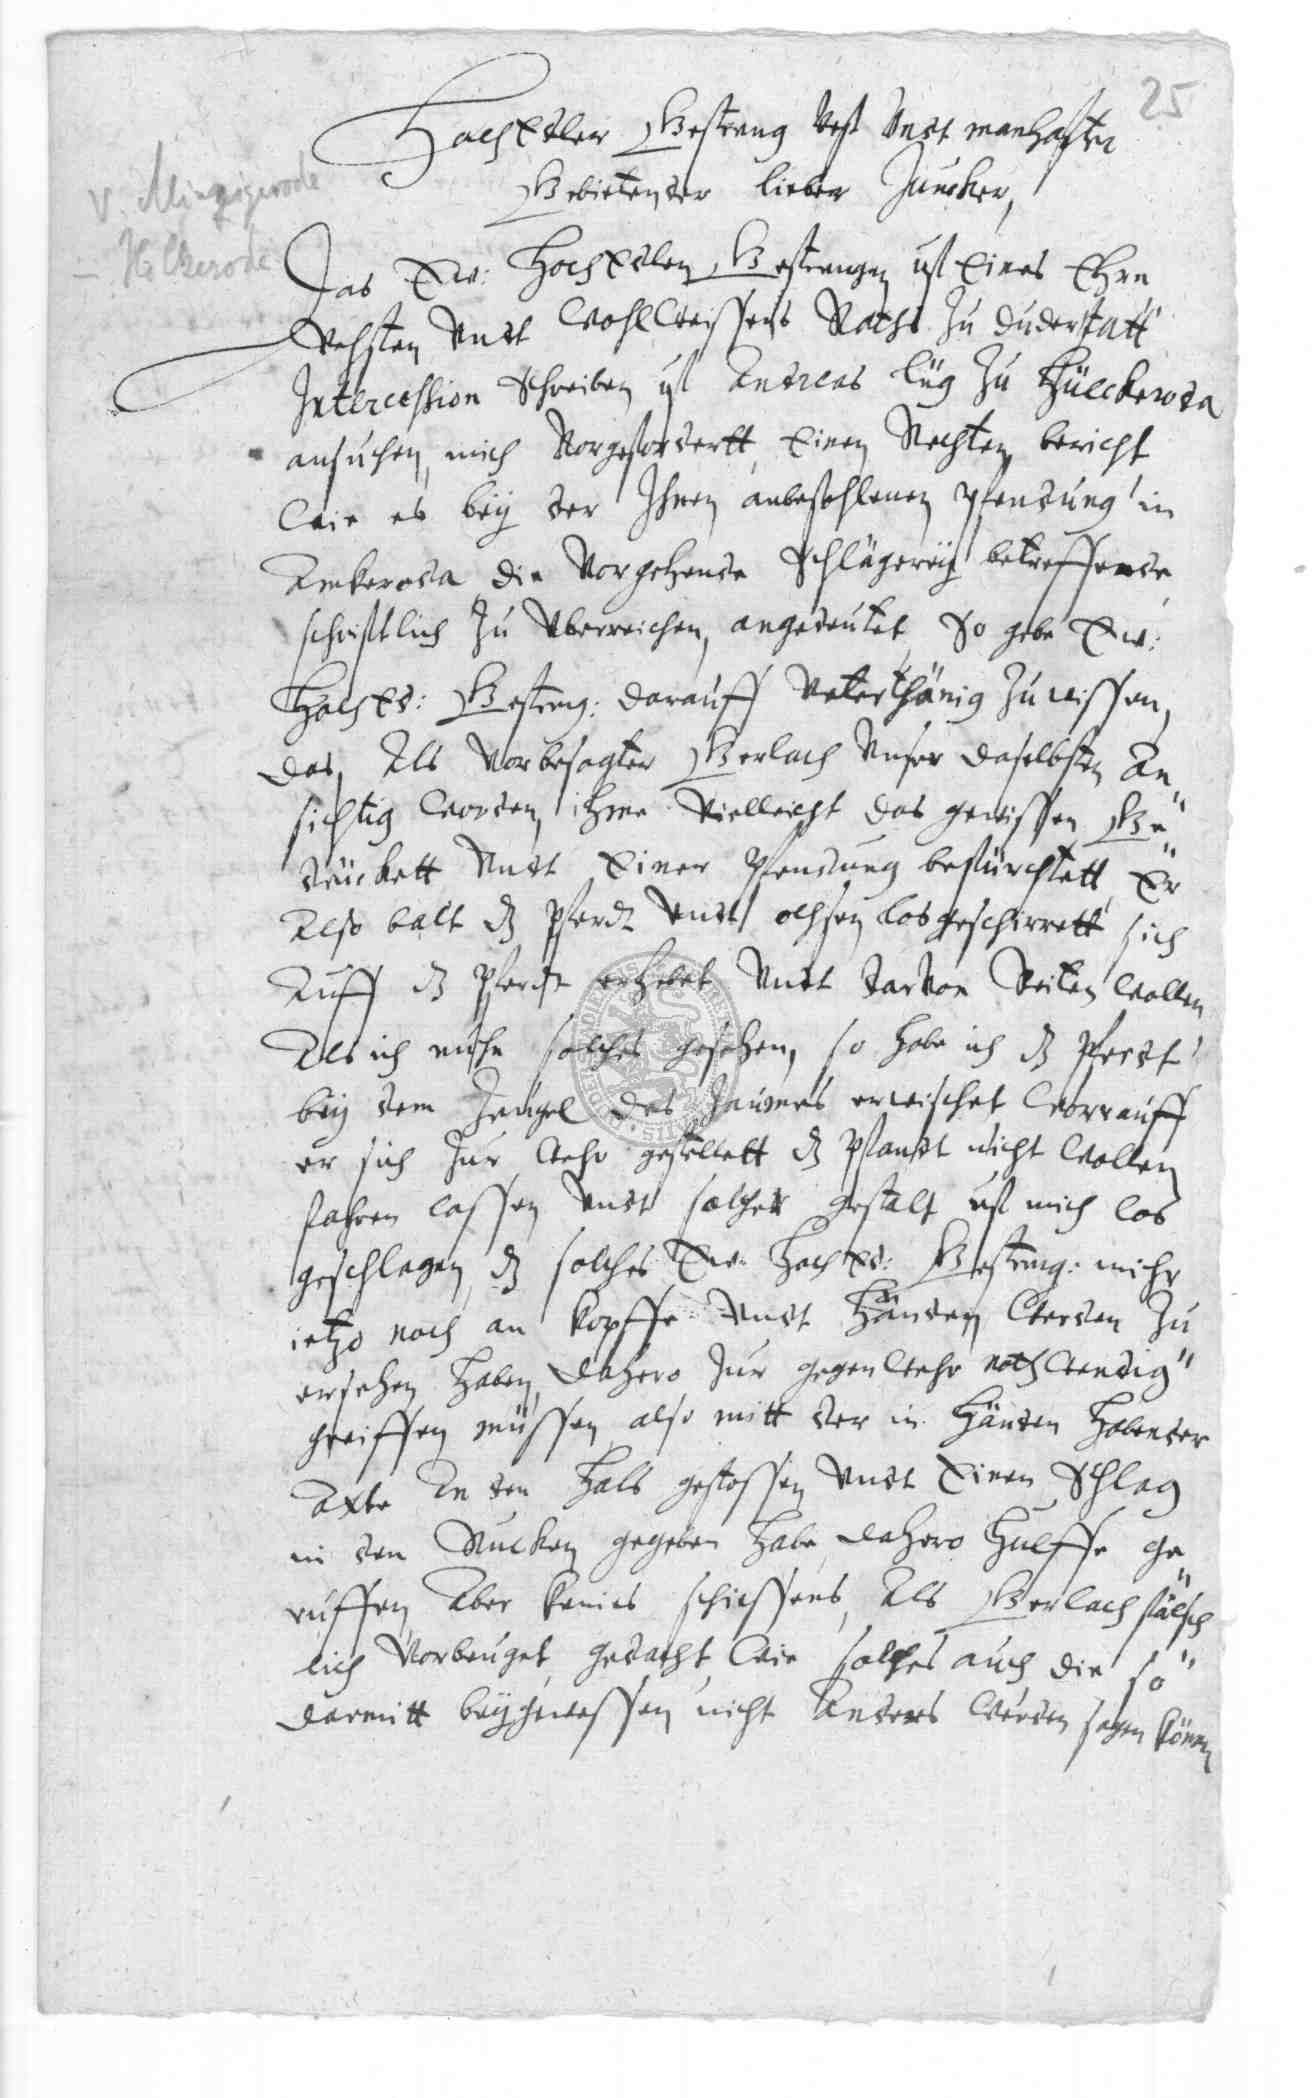 25
HochEdler Gestreng Vest Vndt manhafter
Gebietender lieber Juncker,
v. Minnigerode
– Hilkerode
Das Ew: HochEdlen Gestrengen uf Eines Ehrn
Vehsten Vndt WohlWeissens Raths Zu duderstatt
Intercession Schreiben uf Andreas Zu Hülckeroda
ansuchen, mich Vorgefordertt, Einen Rechten bericht
Wie es bey der Ihnen anbefohlenen Pfendung in
die Vorgehende Schlägerey betreffende,
schriftlich Zu Vberreichen, angedeutet, So gebe Ew:
HochEd: Gestreng: darauff Vnterthänig Zu wissen,
das, Als Vorbesagter Gerlach Vnser daselbsten An„
sichtig Worden, ihme Vielleicht das gewissen Ge„
drückett Vndt Einer Pfendung befürchtett, Er
Also balt dz Pferdt Vndt ochsen losgeschirrett sich
Auff dz Pferdt erhebet Vndt darVon Reiten Wollen
Als ich nuhn solches gesehen, so habe ich dz Pferdt
bey dem Zeugel des Zaumes erwischet, Worrauff
er sich Zur Wehr gestellett dz Pfandt nicht Wollen
fahren lassen Vndt solcher gestalt uf mich los
geschlagen, dz solches Ew: HochEd: Gestreng: mihr
ietzo noch an Kopffe Vndt Händen Werden Zu
ersehen haben, dahero Zur gegenWehr nothWendig„
greiffen müssen, also mitt der in Händen habender
Axte An den Hals gestossen Vndt Einen Schlag
in den Rucken gegeben habe, dahero Hulffe ge„
ruffen, Aber keines schiessens, Als Gerlach fälsch
lich Vorbeuget, gedacht, Wie solches auch die so„
darmitt beygewessen nicht Anders Werden sagen können